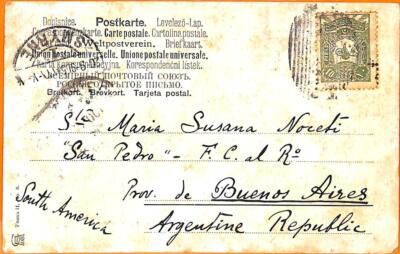 Dopisnice. Postkarte. Levelező-Lap.
Correspondenzkarte. Carte postale. Cartolina postale.
Weltpostverein. Briefkaart.
Union postale universelle. Unione postale universale.
Karta korespondencyjna. Korespondenční lístek.
ВСЕМІРНЫЙ ПОЧТОВЫЙ СОЮЗЪ.
ОТКРЫТОЕ ПИСЬМО.
Brefkort. Brevkort. Tarjeta postal.
SMYRNE
10
Sta Maria Susana Noceti
"San Pedro" - F. C. al Ro
Prov. de Buenos Aires
South America
Argentine Republic